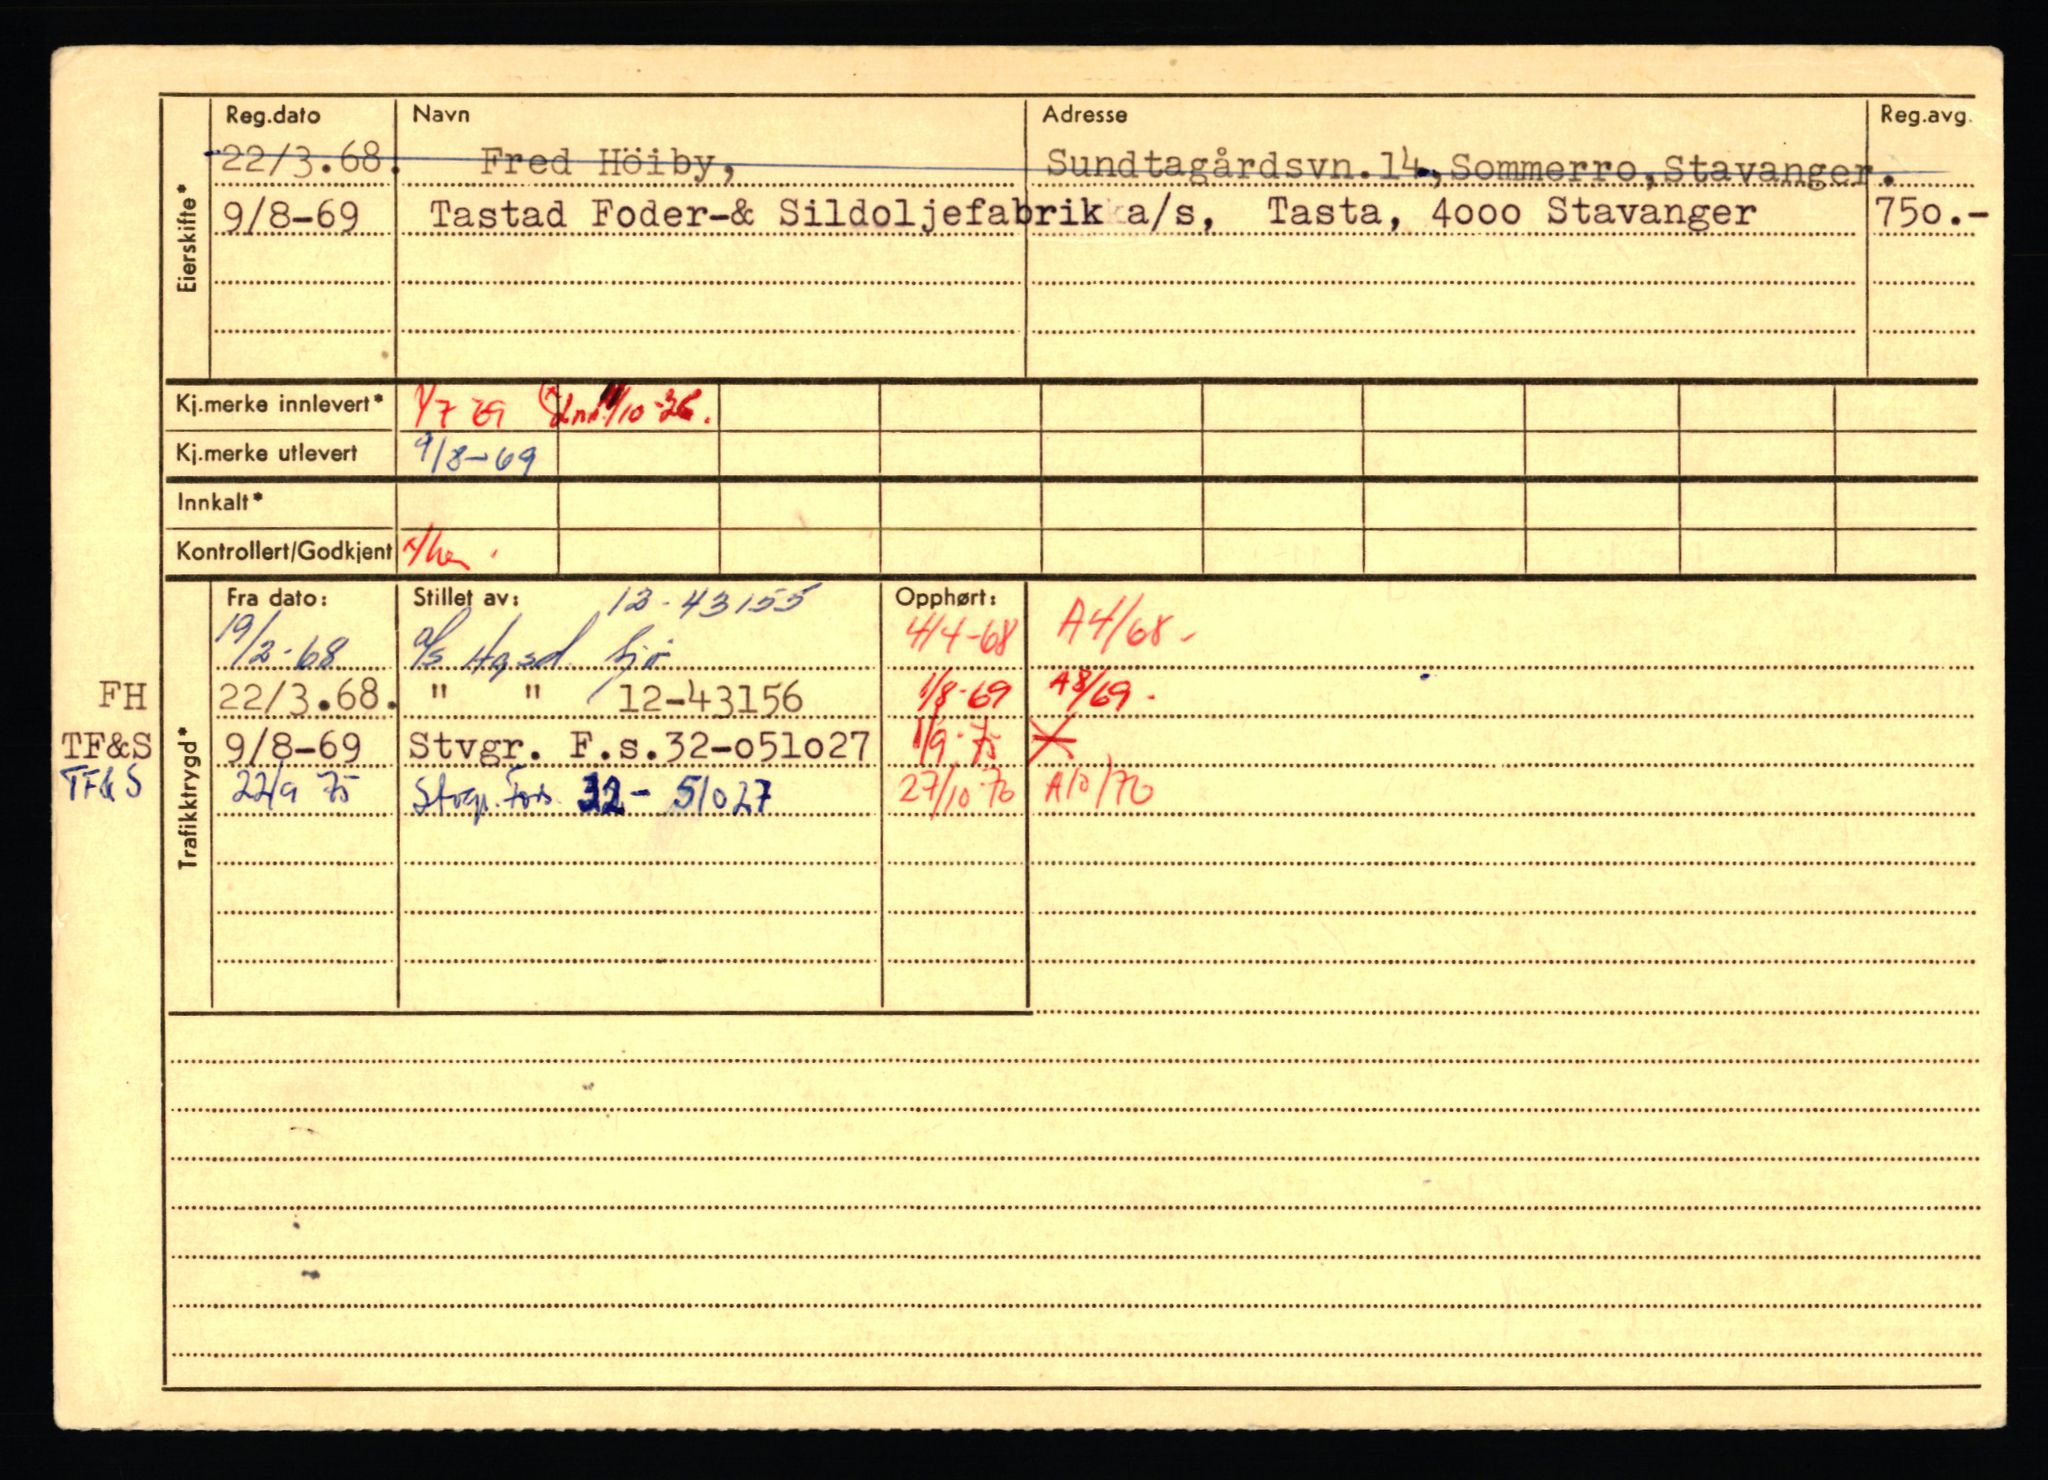 Reg.dato Navn Adresse Reg.avg.
22/3.68. Fred Höiby, Sundtagårdsvn.14.,Sommerro,Stavanger.
9/8-69 Tastad Foder-& Sildoljefabrik a/s, Tasta, 4000 Stavanger 750.-
Eierskifte*
Kj.merke innlevert* 1/7 69 /10-
Kj.merke utlevert 9/8-69
Innkalt*
Kontrollert/Godkjent
Fra dato: Stillet av: 12-43155 Opphørt:
19/2-68 a/s 4/4-68 A4/68.
FH 22/3.68. " " 12-43156 1/8-69 A8/69.
TF&S 9/8-69 Stvgr. F.s.32-051027 1/9-75
TF&S 22/9 75 Stvgr. Fors. 32-51027 27/10-76 A10/76
Trafikktrygd*